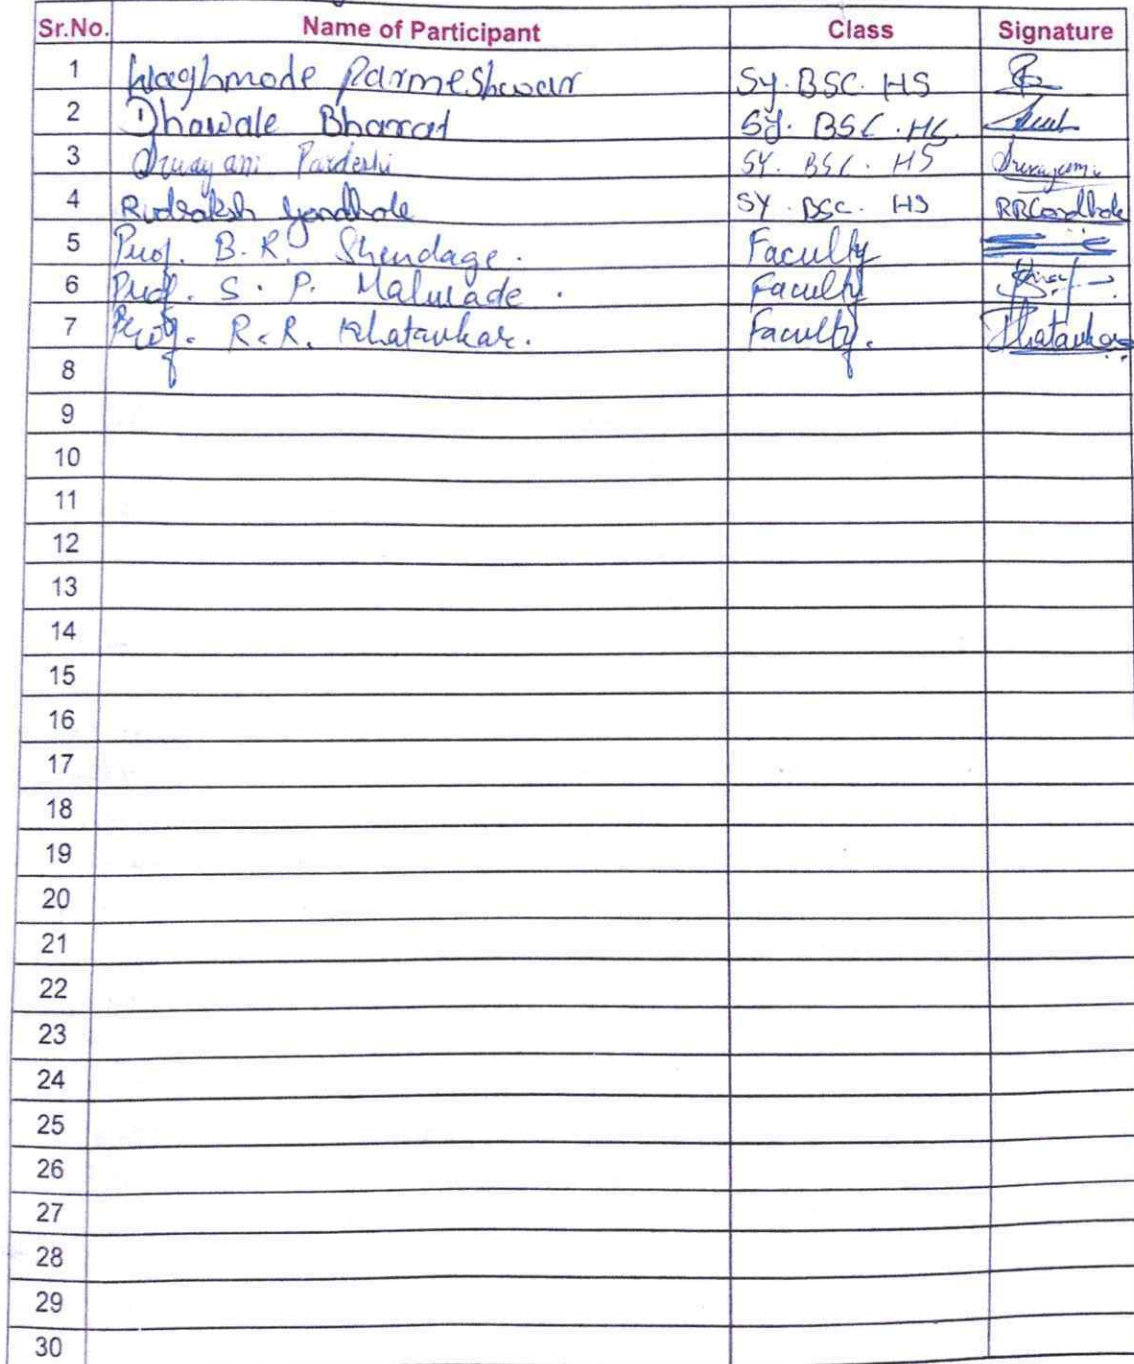 Sr.No. Name of Participant Class Signature
1 Waghmode Parmeshwar Sy. BSC. HS
2 Dhawale Bharat Sy. BSC. HS.
3 Pardeshi SY. BSC. HS
4 Rudraksh SY. BSC. HS
5 Prof. B.R. Shendage. Faculty
6 Prof. S. P. Malwade. Faculty
7 Prof. R.R. Khatavkar. Faculty. Khatavkar
8
9
10
11
12
13
14
15
16
17
18
19
20
21
22
23
24
25
26
27
28
29
30